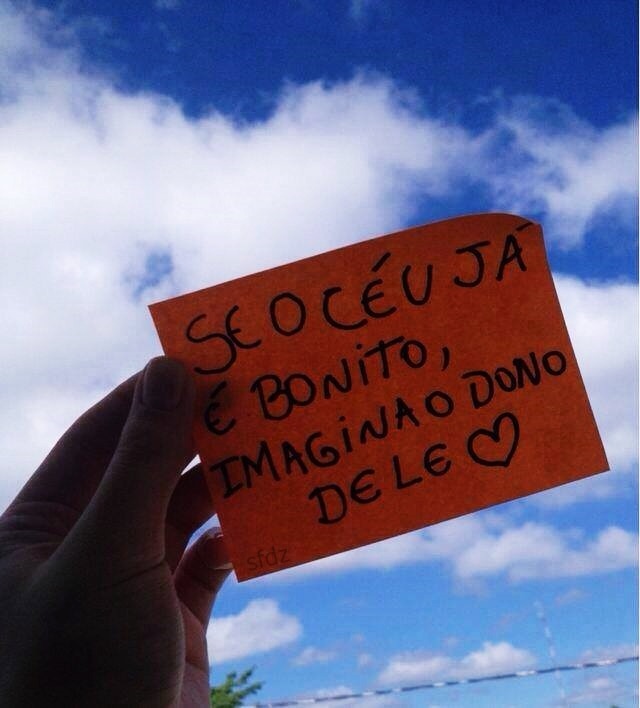 SE O CÉU JÁ
É BONITO,
IMAGINA O DONO
DELE ♡
sfdz